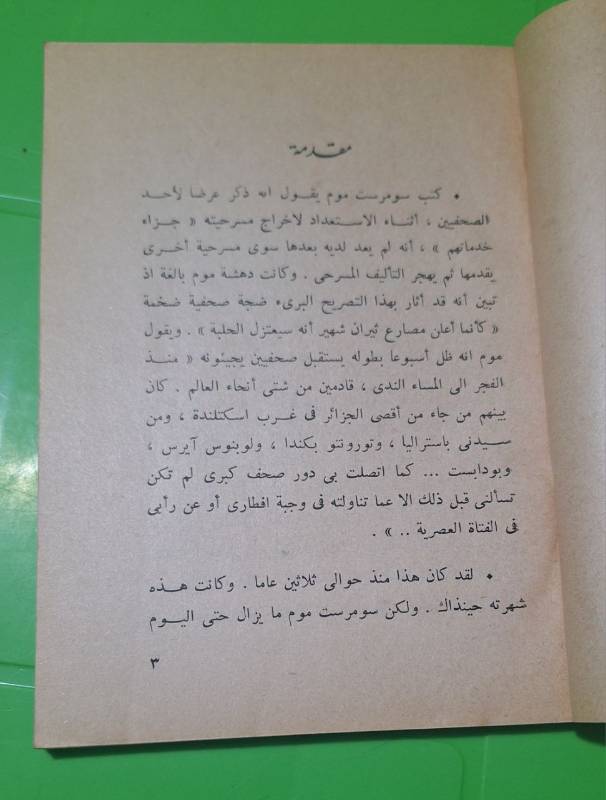 مقدمة
• كتب سومرست موم يقول انه ذكر عرضا لأحد
الصحفيين ، أثناء الاستعداد لاخراج مسرحيته « جزاء
خدماتهم » ، أنه لم يعد لديه بعدها سوى مسرحية أخرى
يقدمها ثم يهجر التأليف المسرحى . وكانت دهشة موم بالغة اذ
تبين أنه قد أثار بهذا التصريح البرىء ضجة صحفية ضخمة
« كأنما أعلن مصارع ثيران شهير أنه سيعتزل الحلبة » . ويقول
موم انه ظل أسبوعا بطوله يستقبل صحفيين يجيئونه « منذ
الفجر الى المساء الندى ، قادمين من شتى أنحاء العالم . كان
بينهم من جاء من أقصى الجزائر فى غرب اسكتلندة ، ومن
سيدنى باستراليا ، وتورونتو بكندا ، ولوبنوس آيرس ،
وبودابست ... كما اتصلت بى دور صحف كبرى لم تكن
تسألنى قبل ذلك الا عما تناولته فى وجبة افطارى أو عن رأيى
فى الفتاة العصرية .. » .
• لقد كان هذا منذ حوالى ثلاثين عاما . وكانت هذه
شهرته حينذاك . ولكن سومرست موم ما يزال حتى اليوم
٣